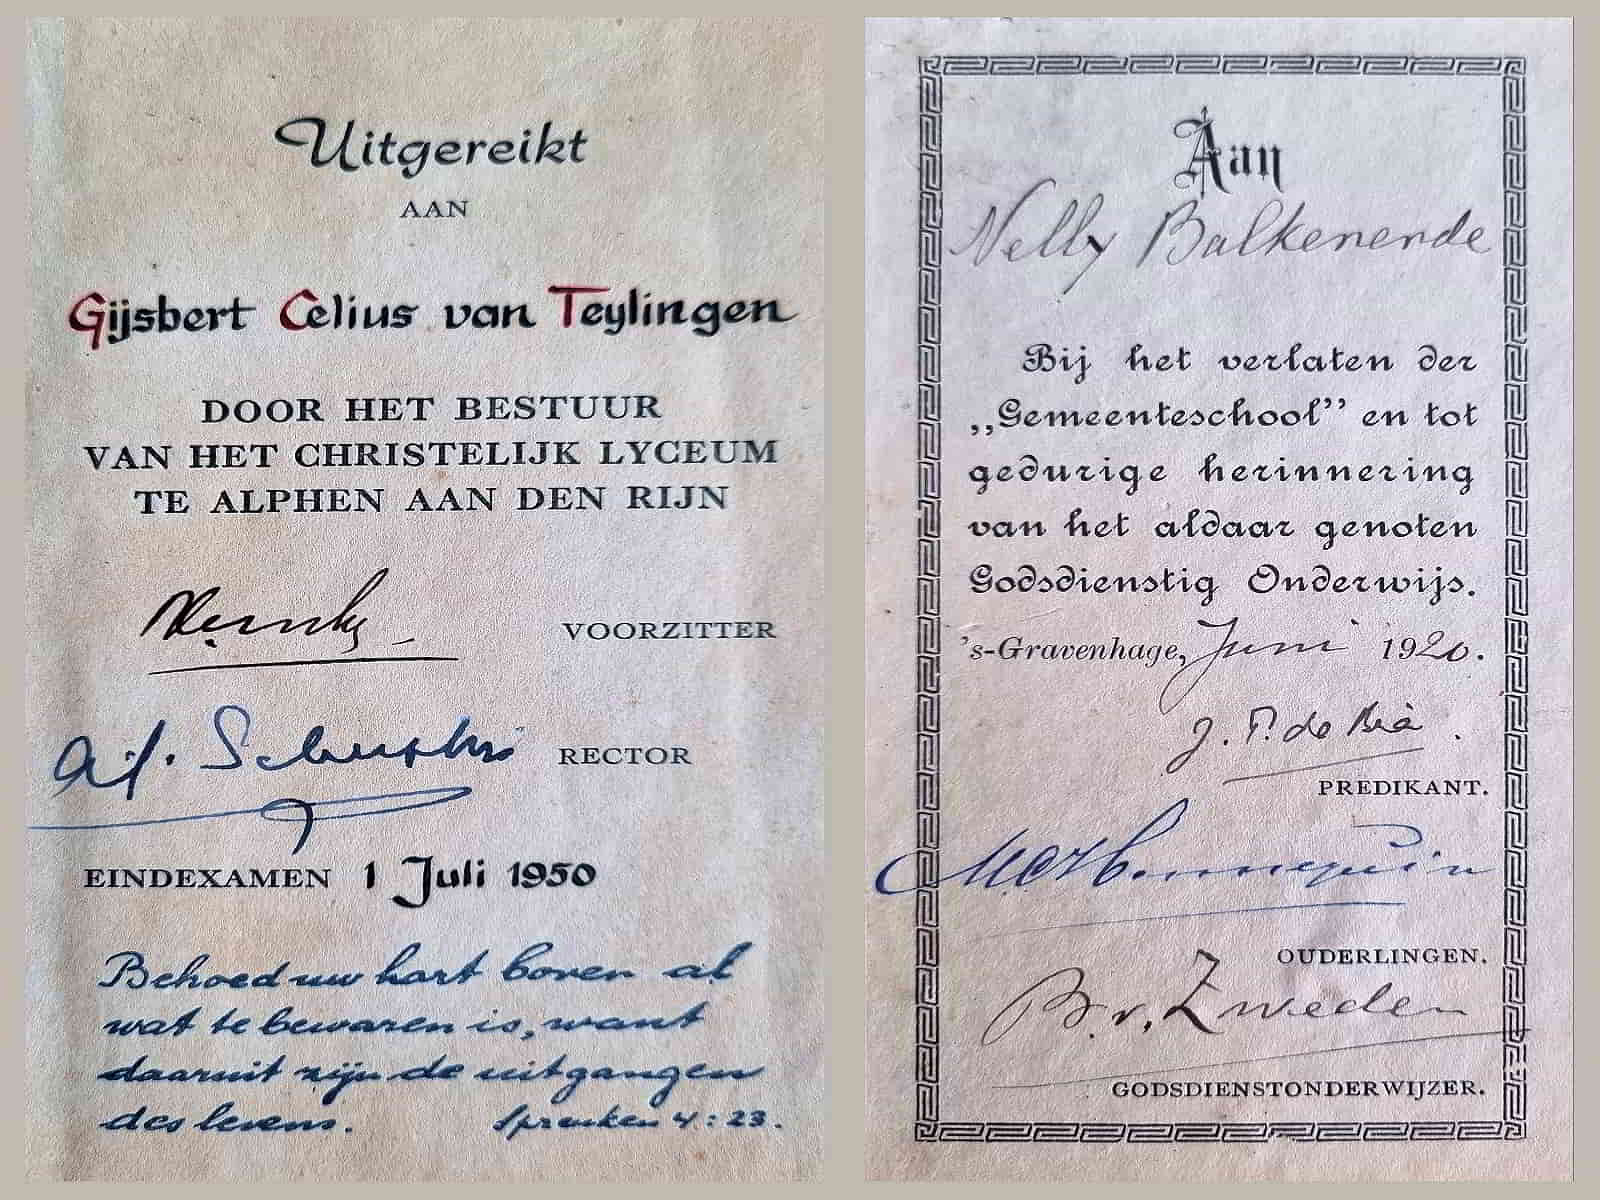 Uitgereikt
AAN
Gijsbert Celius van Teylingen
DOOR HET BESTUUR
VAN HET CHRISTELIJK LYCEUM
TE ALPHEN AAN DEN RIJN
VOORZITTER
RECTOR
EINDEXAMEN 1 Juli 1950
Behoed uw hart boven al
wat te bewaren is, want
daaruit zijn de uitgangen
des levens. Spreuken 4:23.
Aan
Nelly Balkenende
Bij het verlaten der
„Gemeenteschool” en tot
gedurige herinnering
van het aldaar genoten
Godsdienstig Onderwijs.
's-Gravenhage, Juni 1920.
J. P. de Bie.
PREDIKANT.
Hennequin
OUDERLINGEN.
B. v. Zweden
GODSDIENSTONDERWIJZER.